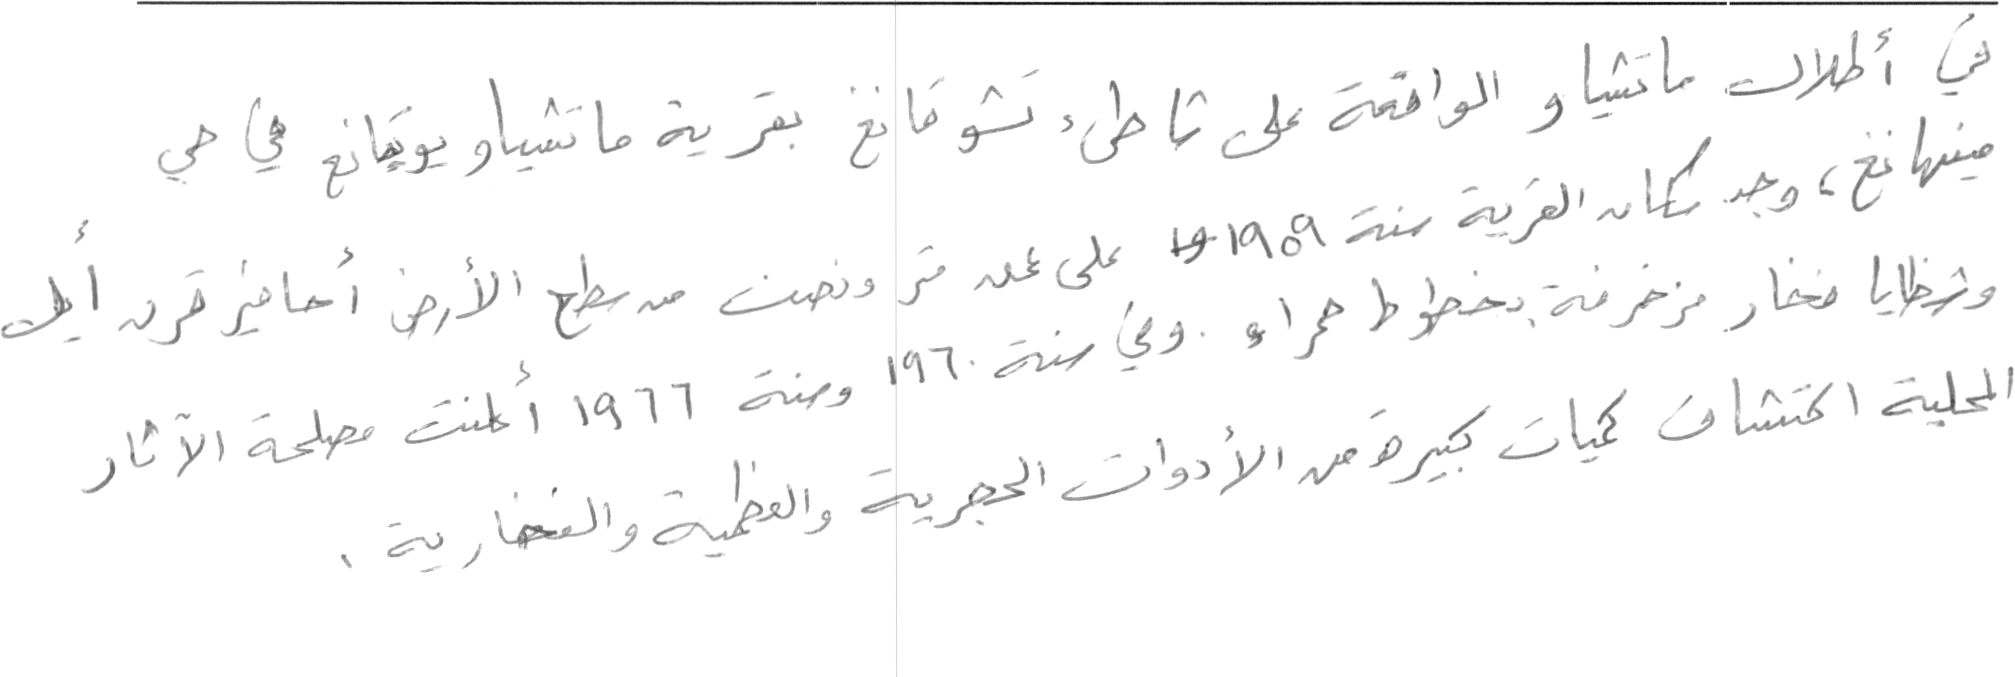 في أطلال ماتشياو الواقعة على شاطىء تشوفانغ بقرية ماتشياو يويفانغ في حي
مينهانغ، وجد سكان القرية سنة ١٩٥٩ على عمق متر ونصف من سطح الأرض أحافير قرن أيل
وشظايا فخار مزخرفة بخطوط حمراء. وفي سنة ١٩٦٠ وسنة ١٩٦٦ أعلنت مصلحة الآثار
المحلية اكتشاف كميات كبيرة من الأدوات الحجرية والعظمية والفخارية.